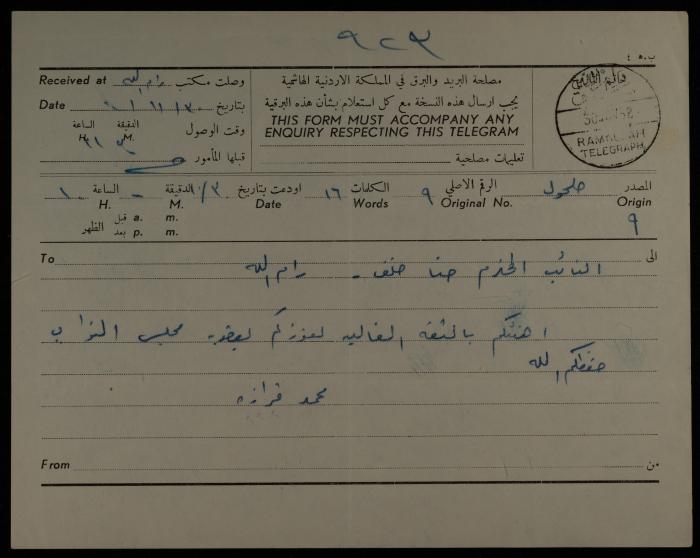 ٩٢٣
ب. ه ٤
Received at وصلت مكتب رام الله
Date بتاريخ
مصلحة البريد والبرق في المملكة الاردنية الهاشمية
يجب ارسال هذه النسخة مع كل استعلام بشأن هذه البرقية
THIS FORM MUST ACCOMPANY ANY
ENQUIRY RESPECTING THIS TELEGRAM
الساعة الدقيقة وقت الوصول
H. M.
قبلها المأمور
تعليمات مصلحية
RAMALLAH
TELEGRAPH
المصدر حلحول
Origin ٩
الرقم الاصلي ٩
Original No.
الكلمات ١٦
Words
اودعت بتاريخ ١/٣٠
Date
الدقيقة -
M.
الساعة ١
H.
قبل a. m.
بعد p. m.
الظهر
To الى
النائب المحترم حنا خلف - رام الله
اهنئكم بالثقه الغاليه لفوزكم بعضويه مجلس النواب
حفظكم الله
محمد قزازه
From من